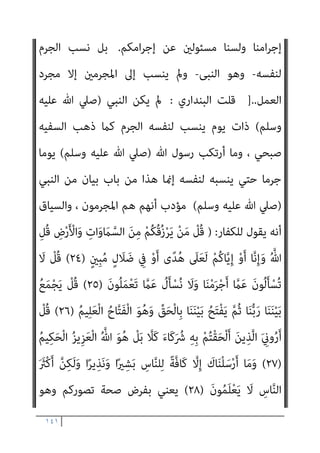 إجرامنا ولسنا مسئولين عن إجرامكم. بل نسب الجرم
لنفسه- وهو النبى- ولم ينسب إلى المجرمين إلا مجرد
العمل..[ قلت البنداري : لم يكن النبي (صلي الله عليه
وسلم) ذات يوم ينسب لنفسه الجرم كما ذهب السفيه
صبحي ، وما أرتكب رسول الله (صلي الله عليه وسلم) يوما
جرما حتي ينسبه لنفسه إنما هذا من باب بيان من النبي
(صلي الله عليه وسلم) مؤدب أنهم هم المجرمون ، والسياق
أنه يقول للكفار: ( قُلْ مَنْ يَرْزُقُكُمْ مِنَ السَّمَاوَاتِ وَالْأَرْضِ قُلِ
اللَّهُ وَإِنَّا أَوْ إِيَّاكُمْ لَعَلَى هُدًى أَوْ فِي ضَلَالٍ مُبِينٍ (٢٤) قُلْ لَا
تُسْأَلُونَ عَمَّا أَجْرَمْنَا وَلَا نُسْأَلُ عَمَّا تَعْمَلُونَ (٢٥) قُلْ يَجْمَعُ
بَيْنَنَا رَبُّنَا ثُمَّ يَفْتَحُ بَيْنَنَا بِالْحَقِّ وَهُوَ الْفَتَّاحُ الْعَلِيمُ (٢٦) قُلْ
أَرُونِيَ الَّذِينَ أَلْحَقْتُمْ بِهِ شُرَكَاءَ كَلَّا بَلْ هُوَ اللَّهُ الْعَزِيزُ الْحَكِيمُ
(٢٧) وَمَا أَرْسَلْنَاكَ إِلَّا كَافَّةً لِلنَّاسِ بَشِيرًا وَنَذِيرًا وَلَكِنَّ أَكْثَرَ
النَّاسِ لَا يَعْلَمُونَ (٢٨) يعني بفرض صحة تصوركم وهو
١٤١